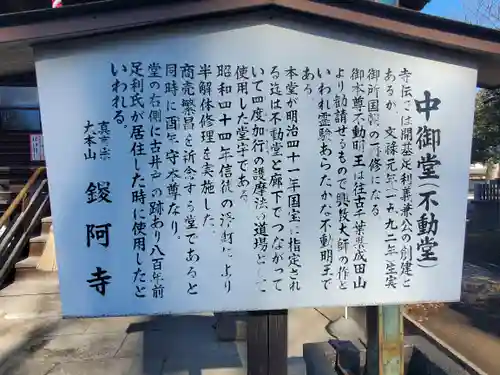 中御堂（不動堂）
寺伝では開基足利義兼公の創建と
あるが、文禄元年（一五九二年）生実
御所国朝の再修になる
御本尊不動明王は往古千葉県成田山
より勧請せるもので興教大師の作と
いわれ霊験あらたかな不動明王で
ある。
本堂が明治四十一年国宝に指定され
る迄は不動堂と廊下でつながって
いて四度加行の護摩法の道場として
使用した堂宇である。
昭和四十四年信徒の浄財により
半解体修理を実施した。
商売繁昌を祈念する堂であると
同時に酉年守本尊なり。
堂の右側に古井戸の跡あり八百年前
足利氏が居住した時に使用したと
いわれる。
真言宗
大本山
鑁阿寺